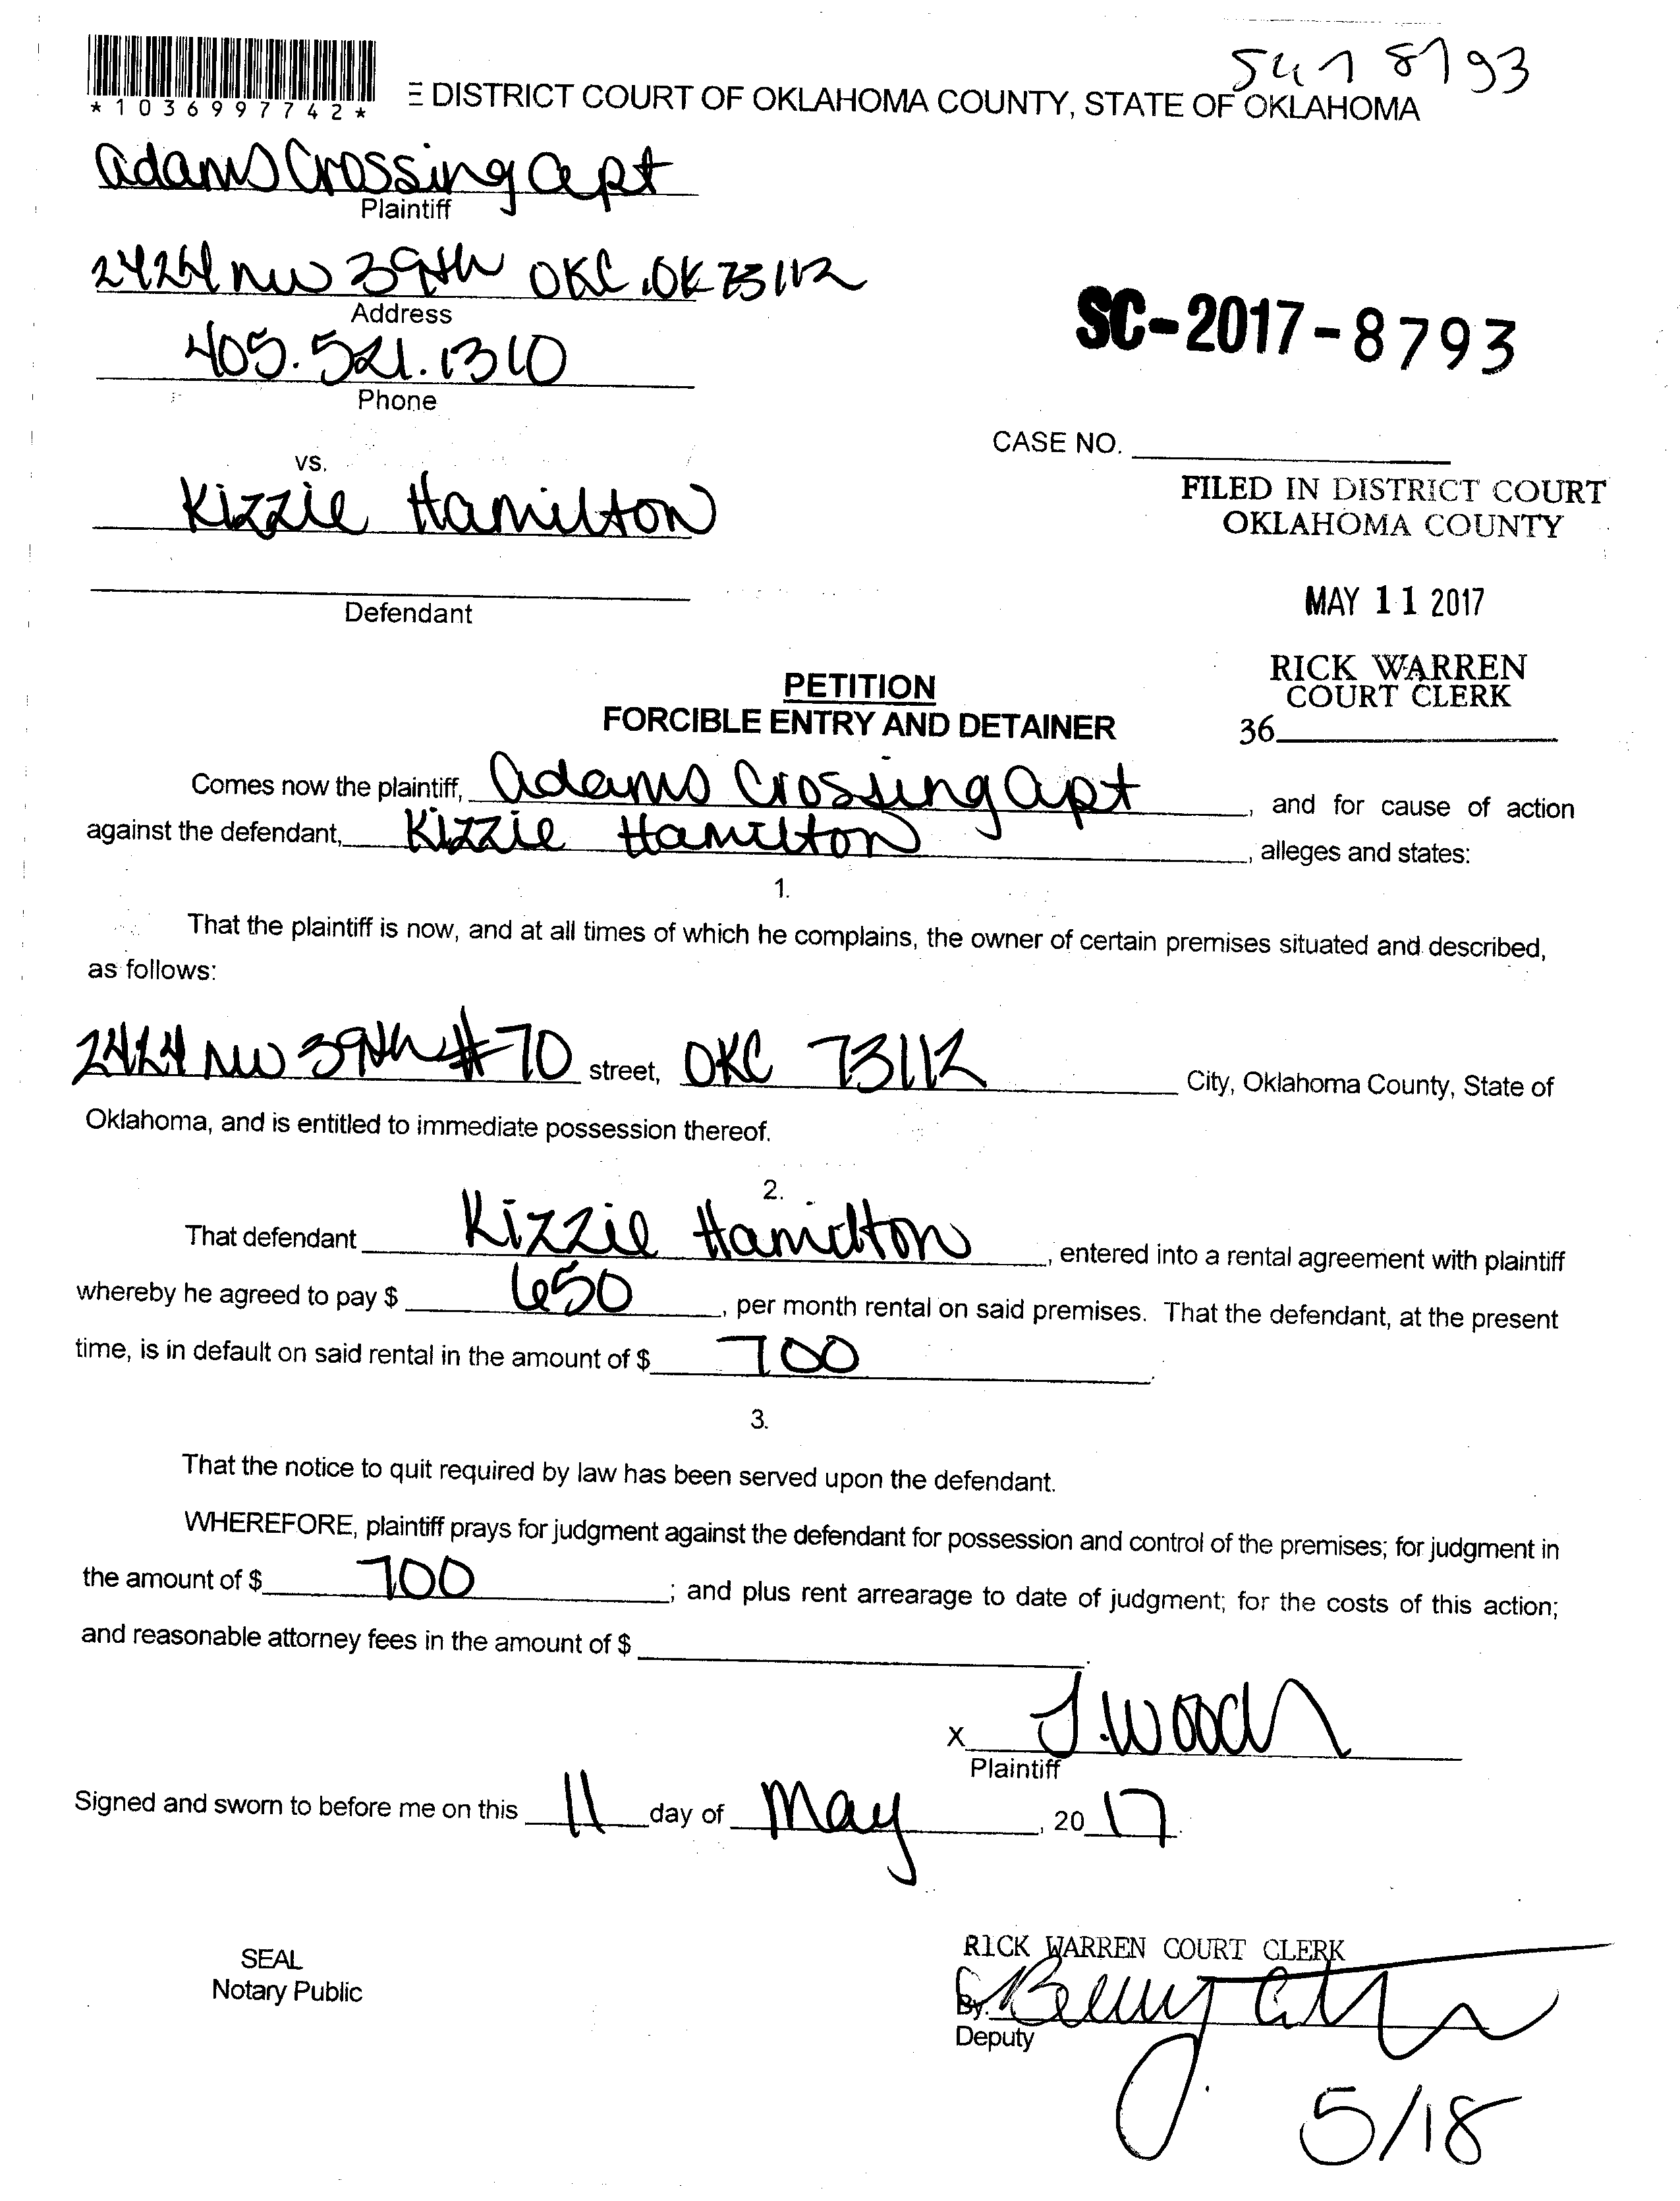 *1036997742*
E DISTRICT COURT OF OKLAHOMA COUNTY, STATE OF OKLAHOMA
8793
Adams Crossing Apt
Plaintiff
2424 NW 39th OKC, OK 73112
Address
405.521.1310
Phone
SC-2017-8793
CASE NO.
vs.
Kizzie Hamilton
Defendant
FILED IN DISTRICT COURT
OKLAHOMA COUNTY
MAY 11 2017
RICK WARREN
COURT CLERK
36
PETITION
FORCIBLE ENTRY AND DETAINER
Comes now the plaintiff, Adams Crossing Apt, and for cause of action
against the defendant, Kizzie Hamilton, alleges and states:
1.
That the plaintiff is now, and at all times of which he complains, the owner of certain premises situated and described,
as follows:
2424 NW 39th #70 street, OKC 73112 City, Oklahoma County, State of
Oklahoma, and is entitled to immediate possession thereof.
2.
That defendant Kizzie Hamilton, entered into a rental agreement with plaintiff
whereby he agreed to pay $ 650, per month rental on said premises. That the defendant, at the present
time, is in default on said rental in the amount of $ 700.
3.
That the notice to quit required by law has been served upon the defendant.
WHEREFORE, plaintiff prays for judgment against the defendant for possession and control of the premises; for judgment in
the amount of $ 700; and plus rent arrearage to date of judgment; for the costs of this action;
and reasonable attorney fees in the amount of $ .
X J. Woods
Plaintiff
Signed and sworn to before me on this 11 day of May, 2017.
SEAL
Notary Public
RICK WARREN COURT CLERK
By.
Deputy
5/18